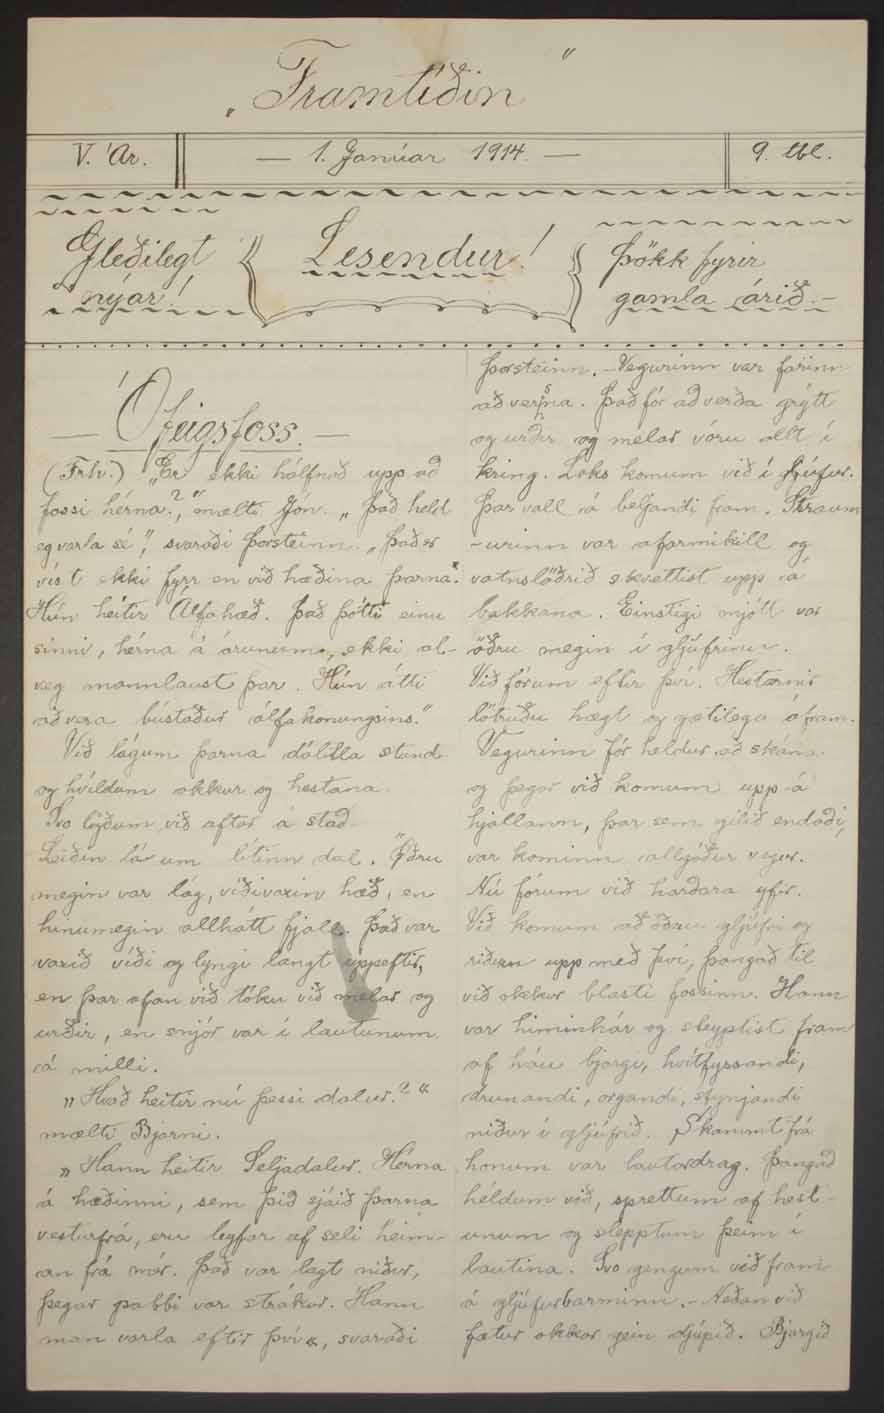 „Framtíðin“
V. Ár.
— 1. Janúar 1914. —
9. tbl.
Gleðilegt
nýár!
Lesendur!
Þökk fyrir
gamla árið.-
— Ófeigsfoss. —
(Frh.) „Er ekki hálfnað upp að
fossi hérna?,“ mælti Jón. „Það held
eg varla sé“, svaraði Þorsteinn. „Það er
víst ekki fyrr en við hæðina þarna.
Hún heitir Álfahæð. Það þótti einu
sinni, hérna á árunum, ekki al-
veg mannlaust þar. Hún átti
að vera bústaður álfakonungsins.“
Við lágum þarna dálitla stund
og hvíldum okkur og hestana.
Svo lögðum við aftur á stað.
Leiðin lá um lítinn dal. Öðru
megin var lág, víðivaxin hæð, en
hinumegin allhátt fjall. Það var
vaxið víði og lyngi langt uppeftir,
en þar ofan við tóku við melar og
urðir, en snjór var í lautunum
á milli.
„Hvað heitir nú þessi dalur?“
mælti Bjarni.
„Hann heitir Seljadalur. Hérna
á hæðinni, sem þið sjáið þarna
vesturfrá, eru leyfar af seli heim-
an frá mér. Það var lagt niður,
þegar pabbi var strákur. Hann
man varla eftir því“, svaraði
Þorsteinn. - Vegurinn var farinn
að versna. Það fór að verða grýtt
og urðir og melar vóru allt í
kring. Loks komum við í gljúfur.
Þar vall á beljandi fram. Straum
-urinn var afarmikill og
vatnslöðrið skvettist upp á
bakkana. Einstigi mjótt var
öðru megin í gljúfrinu.
Við fórum eftir því. Hestarnir
lötruðu hægt og gætilega áfram.
Vegurinn fór heldur að skána
og þegar við komum upp á
hjallann, þar sem gilið endaði,
var kominn allgóður vegur.
Nú fórum við harðara yfir.
Við komum að öðru gljúfri og
riðum upp með því, þangað til
við okkur blasti fossinn. Hann
var himinhár og steyptist fram
af háu bjargi, hvítfyssandi,
drunandi, organdi, stynjandi
niður í gljúfrið. Skammt frá
honum var lautardrag. Þangað
héldum við, sprettum af hest-
unum og slepptum þeim í
lautina. Svo gengum við fram
á gljúfurbarminn. - Neðan við
fætur okkar gein djúpið. Bjargið